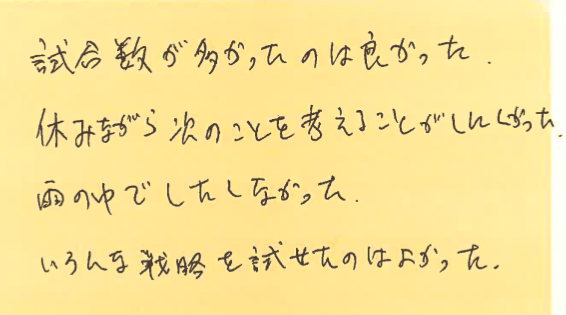 試合数が多かったのは良かった.
休みながら次のことを考えることがしにくかった.
雨の中でしたくなかった.
いろんな戦略を試せたのはよかった.